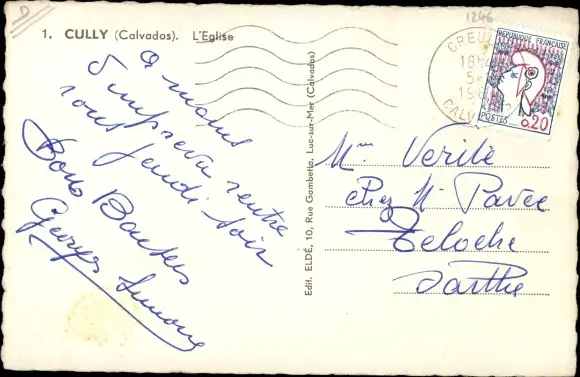 D
1. CULLY (Calvados). L'Eglise
à moins
d'imprévu rentre
rons jeudi soir
Bons Baisers
Georges Simone
Edit. ELDÉ, 10, Rue Gambetta, Luc-sur-Mer (Calvados)
1246
CREU
18
5
19
CALV
RÉPUBLIQUE FRANÇAISE
POSTES
0,20
Mme Verité
Chez M Pavée
Teloché
Sarthe